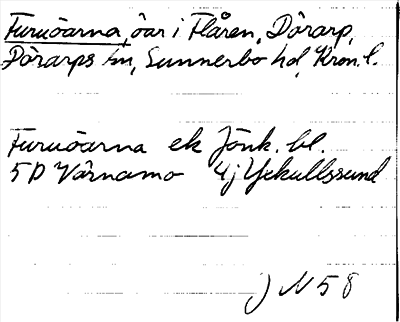 Furuöarna, öar i Flåren, Dörarp,
Dörarps sn, Sunnerbo hd, Kron. l.
Furuöarna ek Jönk. bl.
5D Värnamo 4j Yckullssund
J N 58